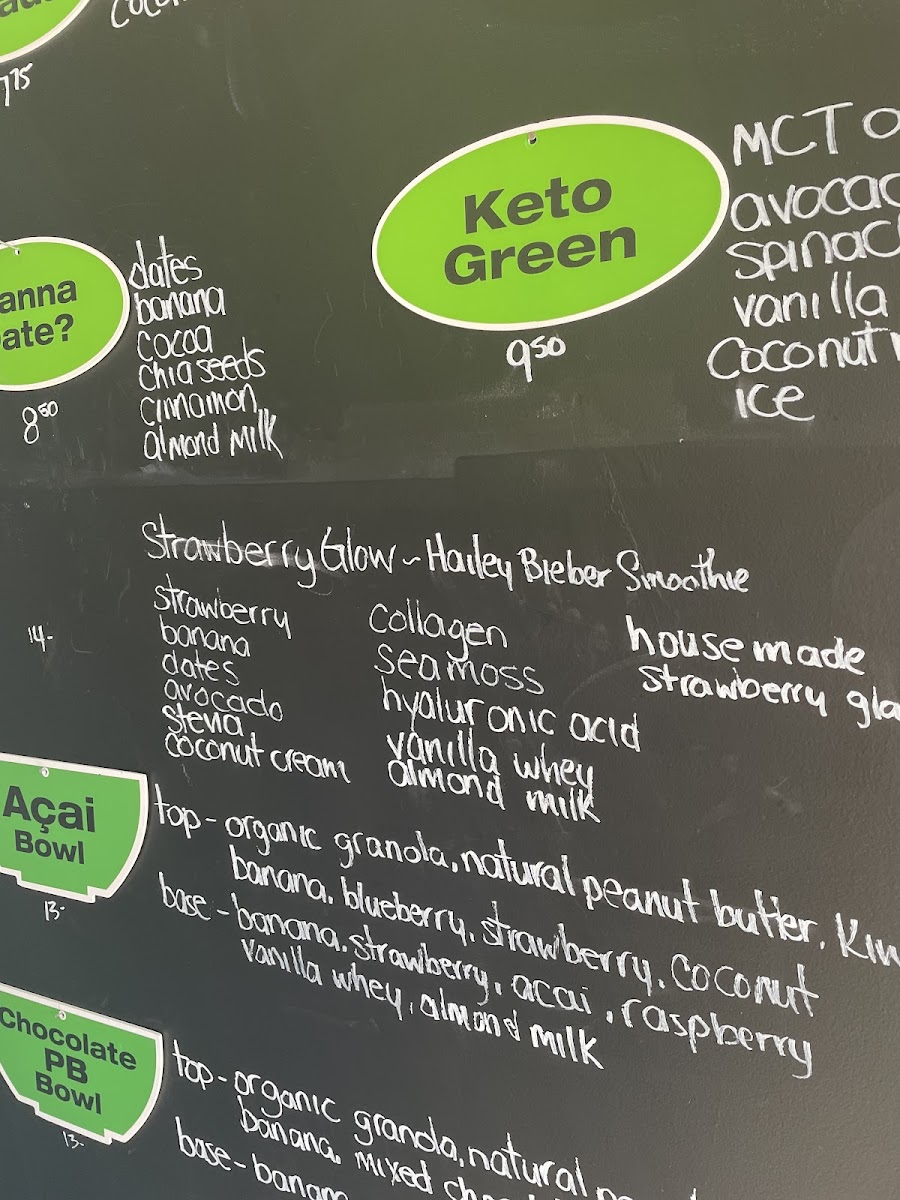 775
Keto
Green
950
MCT
spinac
vanilla
coconut
ice
anna
ate?
850
dates
banana
cocoa
chia seeds
cinnamon
almond milk
Strawberry Glow ~ Hailey Bieber Smoothie
14-
strawberry
banana
dates
avocado
stevia
coconut cream
collagen
seamoss
hyaluronic acid
vanilla whey
almond milk
house made
strawberry gla
Açai
Bowl
13-
top - organic granola, natural peanut butter, Kiw
banana, blueberry, strawberry, coconut
base - banana, strawberry, acai, raspberry
vanilla whey, almond milk
Chocolate
PB
Bowl
13-
top - organic granola, natural
banana, mixed
base - banan